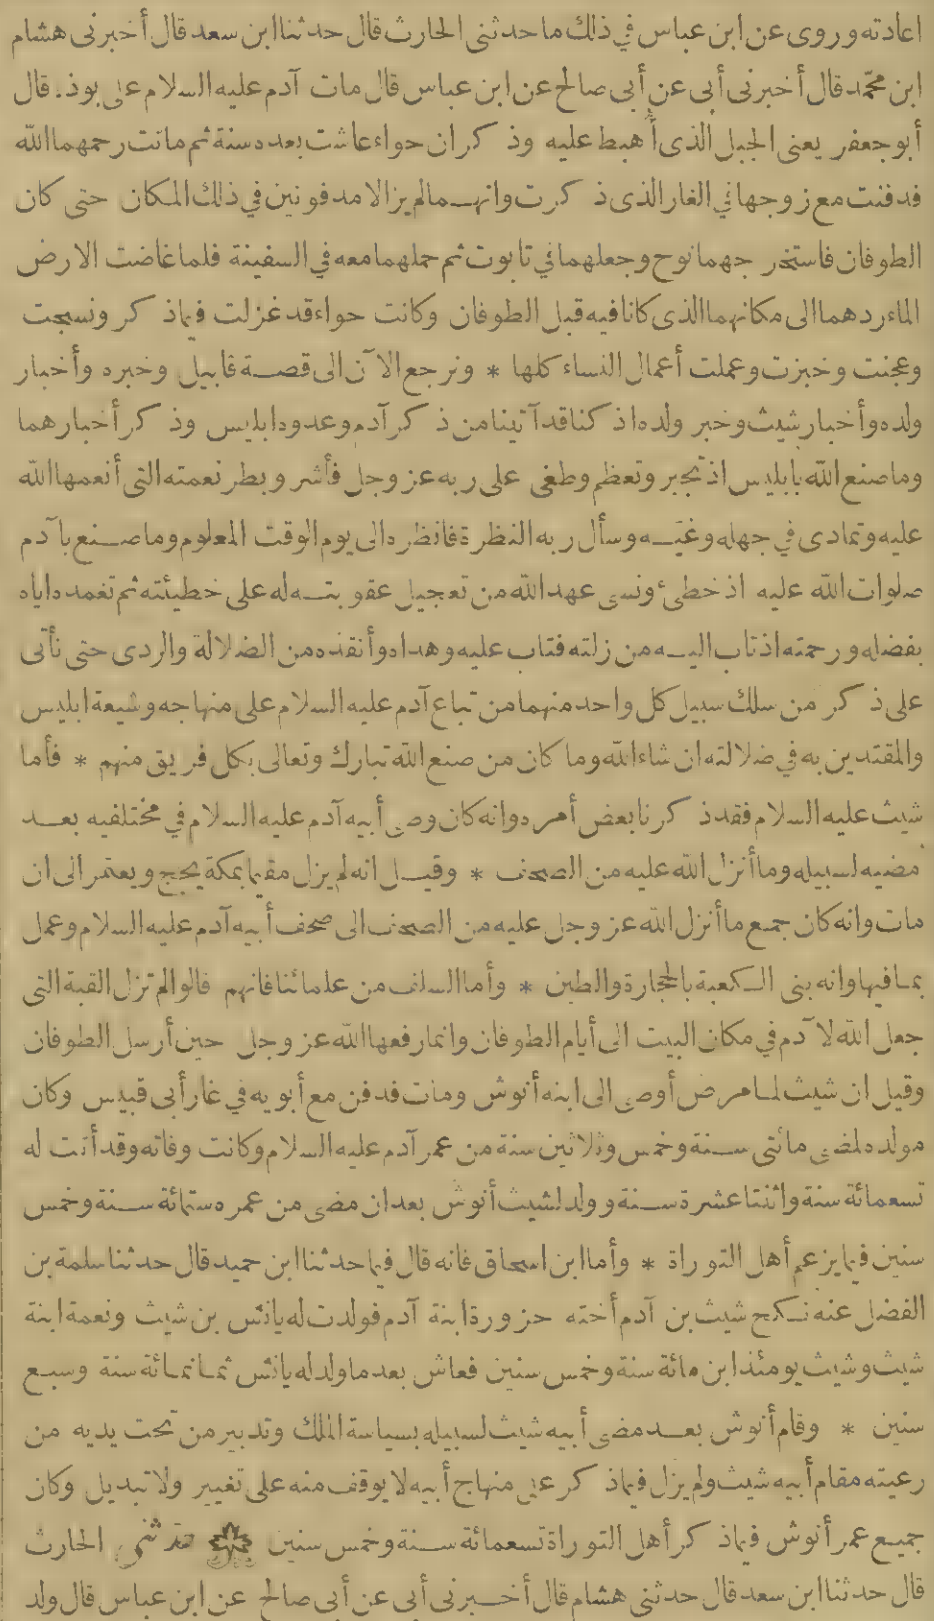 اعادته وروى عن ابن عباس في ذلك ما حدثنى الحارث قال حدثنا ابن سعد قال أخبرنى هشام
ابن محمد قال أخبرنى أبى عن أبى صالح عن ابن عباس قال مات آدم عليه السلام على بوذ . قال
أبو جعفر يعنى الجبل الذى أهبط عليه وذكر ان حواء عاشت بعده سنة ثم ماتت رحمهما الله
فدفنت مع زوجها في الغار الذى ذكرت وانهما لم يزالا مدفونين في ذلك المكان حتى كان
الطوفان فاستخرجهما نوح وجعلهما في تابوت ثم حملهما معه في السفينة فلما غاضت الارض
الماء ردهما الى مكانهما الذى كانا فيه قبل الطوفان وكانت حواء قد غزلت فيما ذكر ونسجت
وعجنت وخبزت وعملت أعمال النساء كلها * ونرجع الآن الى قصة قابيل وخبره وأخبار
ولده وأخبار شيث وخبر ولده اذ كنا قد آتينا من ذكر آدم وعدوه ابليس وذكر أخبارهما
وما صنع الله بابليس اذ تجبر وتعظم وطغى على ربه عز وجل فأشر وبطر نعمته التى أنعمها الله
عليه وتمادى في جهله وغيه وسأل ربه النظرة فانظره الى يوم الوقت المعلوم وما صنع بآدم
صلوات الله عليه اذ خطئ ونسى عهد الله من تعجيل عقوبته له على خطيئته ثم تغمده اياه
بفضله ورحمته اذ تاب اليه من زلته فتاب عليه وهداه وأنقذه من الضلالة والردى حتى نأتى
على ذكر من سلك سبيل كل واحد منهما من تباع آدم عليه السلام على منهاجه وشيعة ابليس
والمقتدين به في ضلالته ان شاء الله وما كان من صنع الله تبارك وتعالى بكل فريق منهم * فأما
شيث عليه السلام فقد ذكرنا بعض أمره وانه كان وصى أبيه آدم عليه السلام في مختلفيه بعد
مضيه لسبيله وما أنزل الله عليه من الصحف * وقيل انه لم يزل مقيما بمكة يحج ويعتمر الى ان
مات وانه كان جمع ما أنزل الله عز وجل عليه من الصحف الى صحف أبيه آدم عليه السلام وعمل
بما فيها وانه بنى الكعبة بالحجارة والطين * وأما السلف من علمائنا فانهم قالوا لم تزل القبة التى
جعل الله لآدم في مكان البيت الى أيام الطوفان وانما رفعها الله عز وجل حين أرسل الطوفان
وقيل ان شيث لما مرض أوصى الى ابنه أنوش ومات فدفن مع أبويه في غار أبى قبيس وكان
مولده لمضى مائتى سنة وخمس وثلاثين سنة من عمر آدم عليه السلام وكانت وفاته وقد أتت له
تسعمائة سنة واثنتا عشرة سنة وولد لشيث أنوش بعد ان مضى من عمره ستمائة سنة وخمس
سنين فيما يزعم أهل التوراة * وأما ابن اسحاق فانه قال فيما حدثنا ابن حميد قال حدثنا سلمة بن
الفضل عنه نكح شيث بن آدم أخته حزورة ابنة آدم فولدت له يانش بن شيث ونعمة ابنة
شيث وشيث يومئذ ابن مائة سنة وخمس سنين فعاش بعد ما ولد له يانش ثمانمائة سنة وسبع
سنين * وقام أنوش بعد مضى أبيه شيث لسبيله بسياسة الملك وتدبير من تحت يديه من
رعيته مقام أبيه شيث ولم يزل فيما ذكر على منهاج أبيه لا يوقف منه على تغيير ولا تبديل وكان
جميع عمر أنوش فيما ذكر أهل التوراة تسعمائة سنة وخمس سنين حدثنى الحارث
قال حدثنا ابن سعد قال حدثنى هشام قال أخبرنى أبى عن أبى صالح عن ابن عباس قال ولد